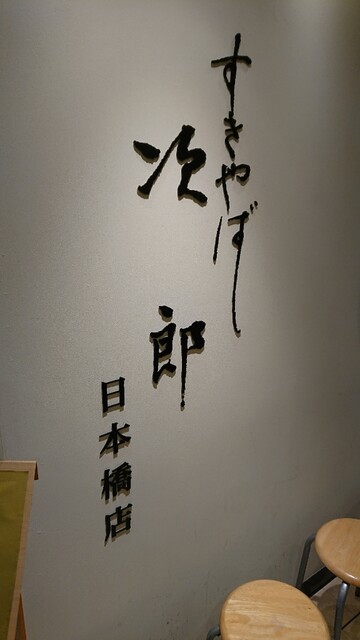 すきやばし
次郎
日本橋店